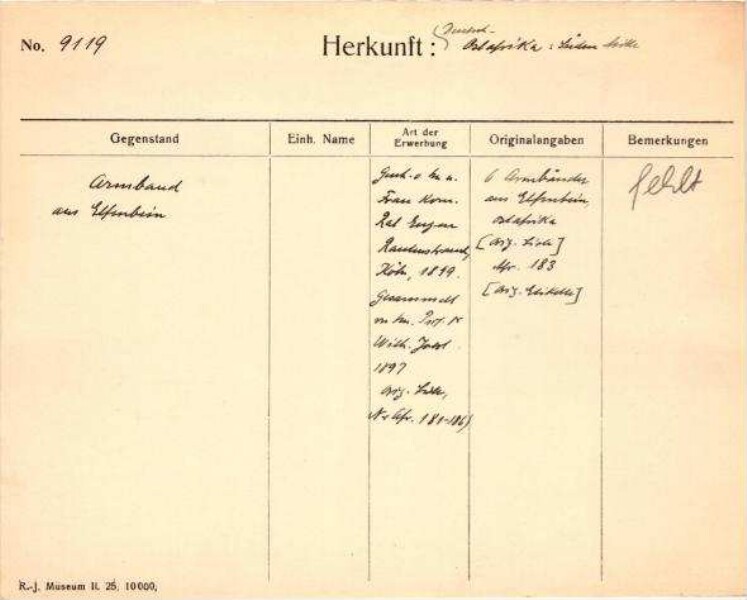 No. 9119
Herkunft: Deutsch-
Ostafrika: Süden
Gegenstand
Einh. Name
Art der
Erwerbung
Originalangaben
Bemerkungen
Armband
aus Elfenbein
Gesch. v. Hn u.
Frau Kom.
Rat Eugen
Rautenstrauch,
Köln, 1899.
Gesammelt
von Hn. Prof. Dr
Wilh. Joest
1897
Orig. Liste,
Nr Afr. 181-186)
6 Armbänder
aus Elfenbein,
Ostafrika
[Orig. Liste]
Afr. 183
[Orig. Etikette]
fehlt
R.-J. Museum II. 25. 10000.